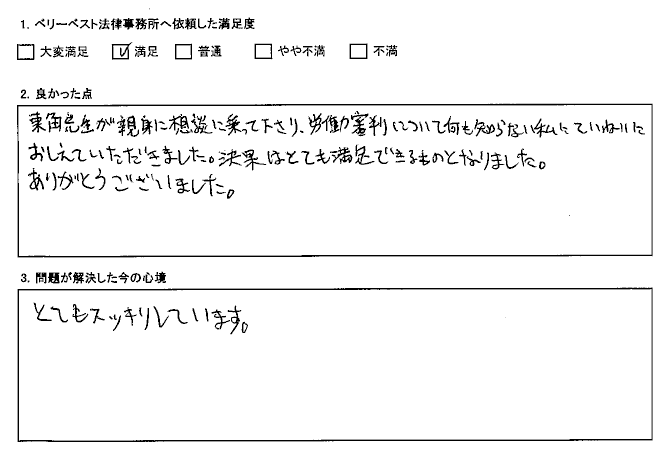 1. ベリーベスト法律事務所へ依頼した満足度
大変満足 満足 普通 やや不満 不満
2. 良かった点
東角先生が親身に相談に乗って下さり、労働審判について何も知らない私にていねいに
おしえていただきました。決果はとても満足できるものとなりました。
ありがとうございました。
3. 問題が解決した今の心境
とてもスッキリしています。